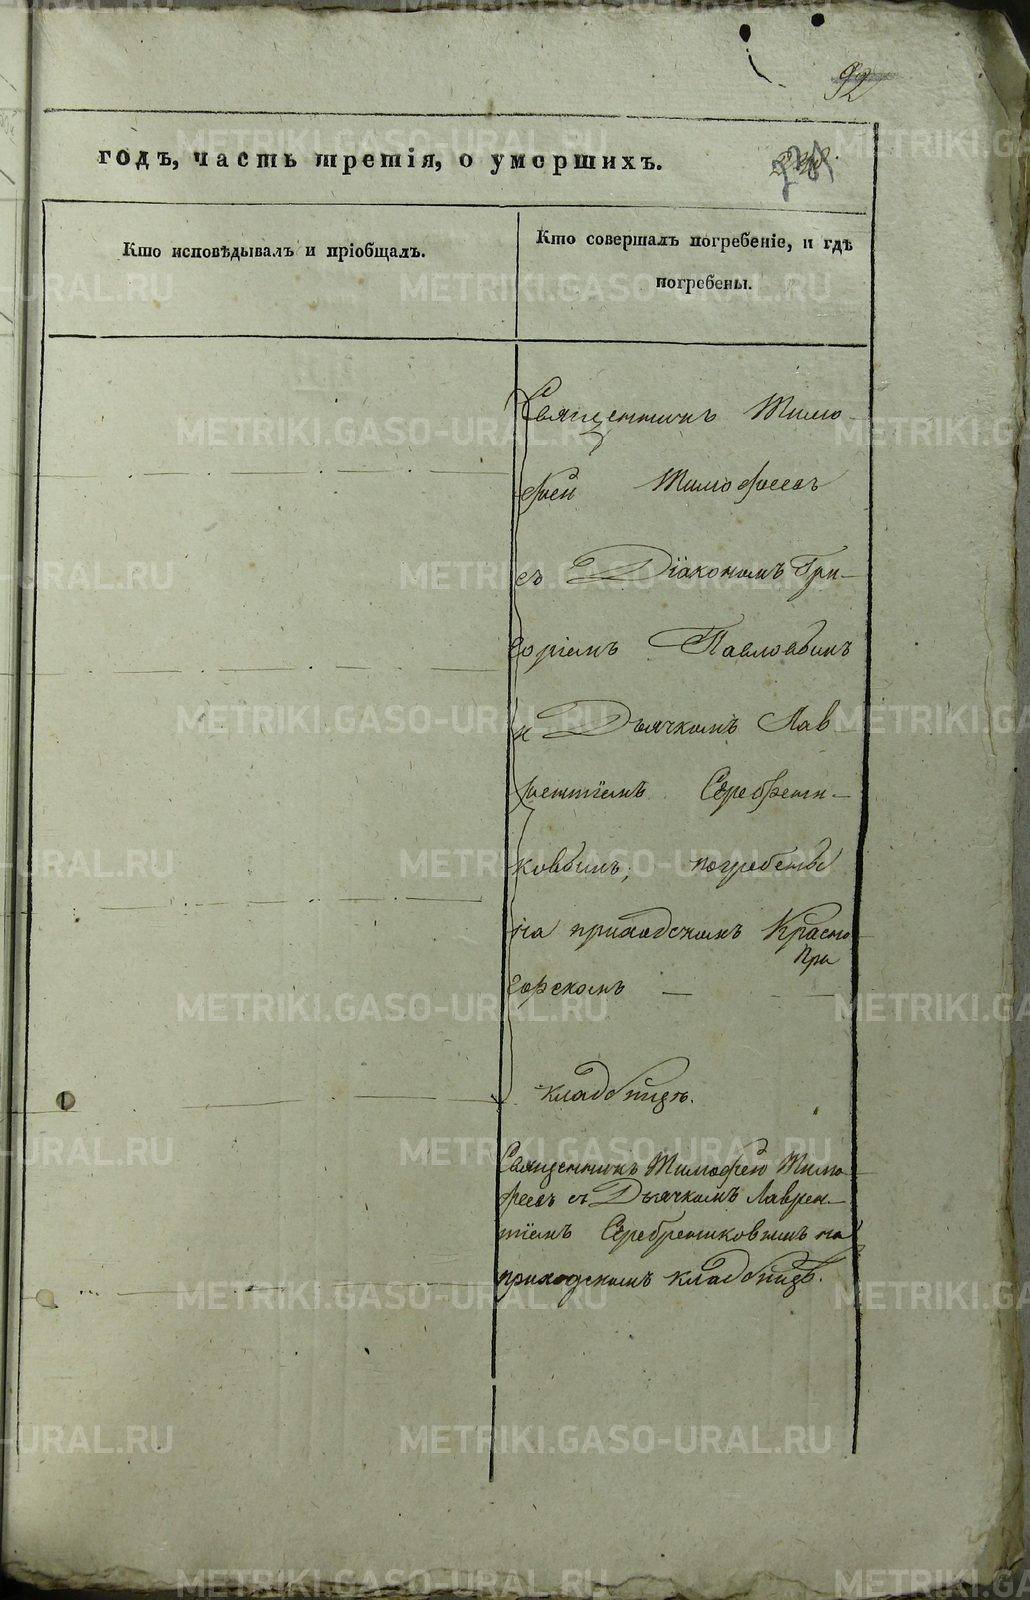 92
годъ, часть третія, о умершихъ.
Кто исповѣдывалъ и пріобщалъ.
Кто совершалъ погребеніе, и гдѣ
погребены.
Священникъ Тимо-
фей Тимофеевъ
съ Діакономъ Гри-
горіемъ Павловымъ
и Дьячкомъ Лав
рентіемъ Серебрени-
ковымъ, погребены
на приходскомъ Красно
при
горскомъ —
кладбищѣ.
Священникъ Тимофей Тимо-
феевъ съ Дьячкомъ Лаврен-
тіемъ Серебрениковымъ на
приходскомъ кладбищѣ.
METRIKI.GASO-URAL.RU